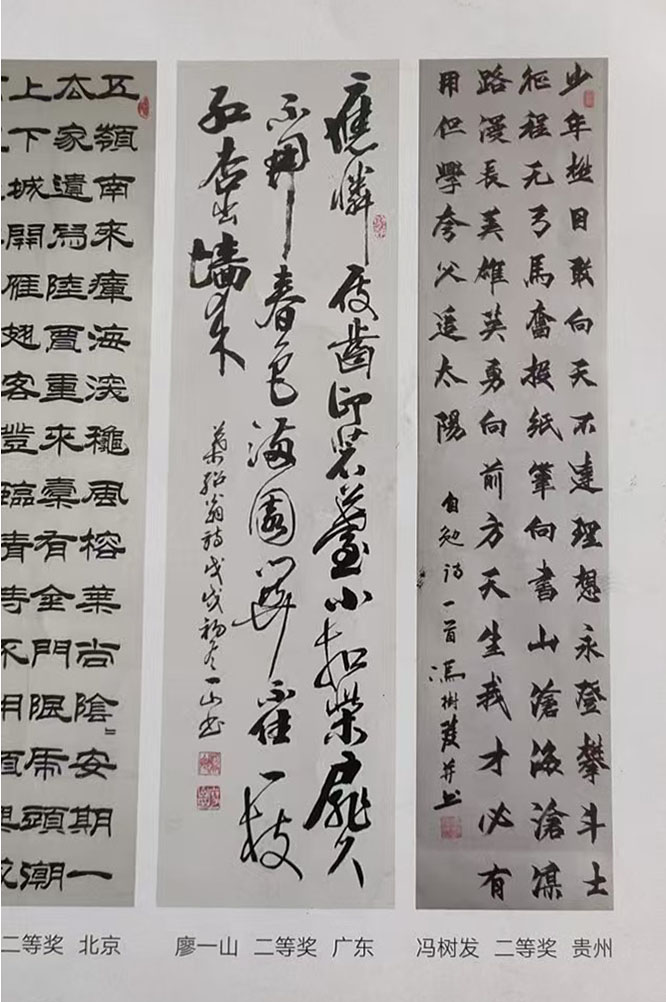 五嶺南來瘴海深穐風榕葉尚陰〻安期一
去家遺舄陸賈重來橐有金門限虎頭潮
上下城開雁翅客登臨青不用
應憐屐齒印苍苔小扣柴扉久
不開春色滿園關不住一枝
红杏出墙来
葉紹翁詩戊戌初冬一山书
少年日敢向天不達理想永登攀斗士
征程无弓馬奮投紙筆向書山滄海滄溟
路漫長英雄英勇向前方天生我才必有
用但學夸父逐太陽
自勉詩一首冯樹發并书
二等奖 北京
廖一山 二等奖 广东
冯树发 二等奖 贵州